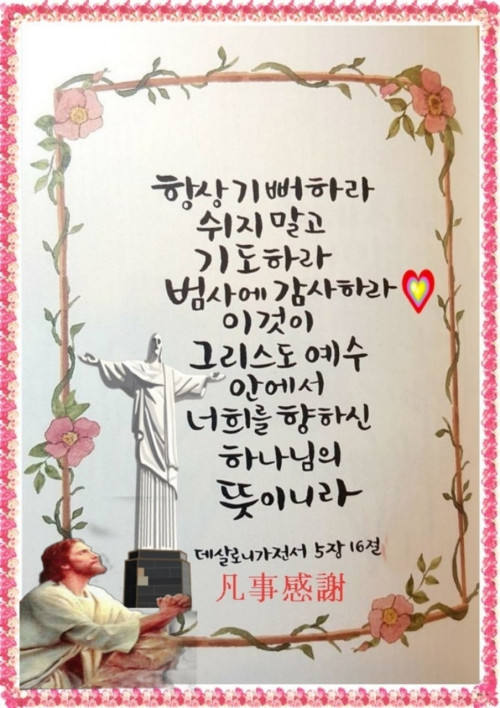 항상 기뻐하라
쉬지 말고
기도하라
범사에 감사하라
이것이
그리스도 예수
안에서
너희를 향하신
하나님의
뜻이니라
데살로니가전서 5장 16절
凡事感謝